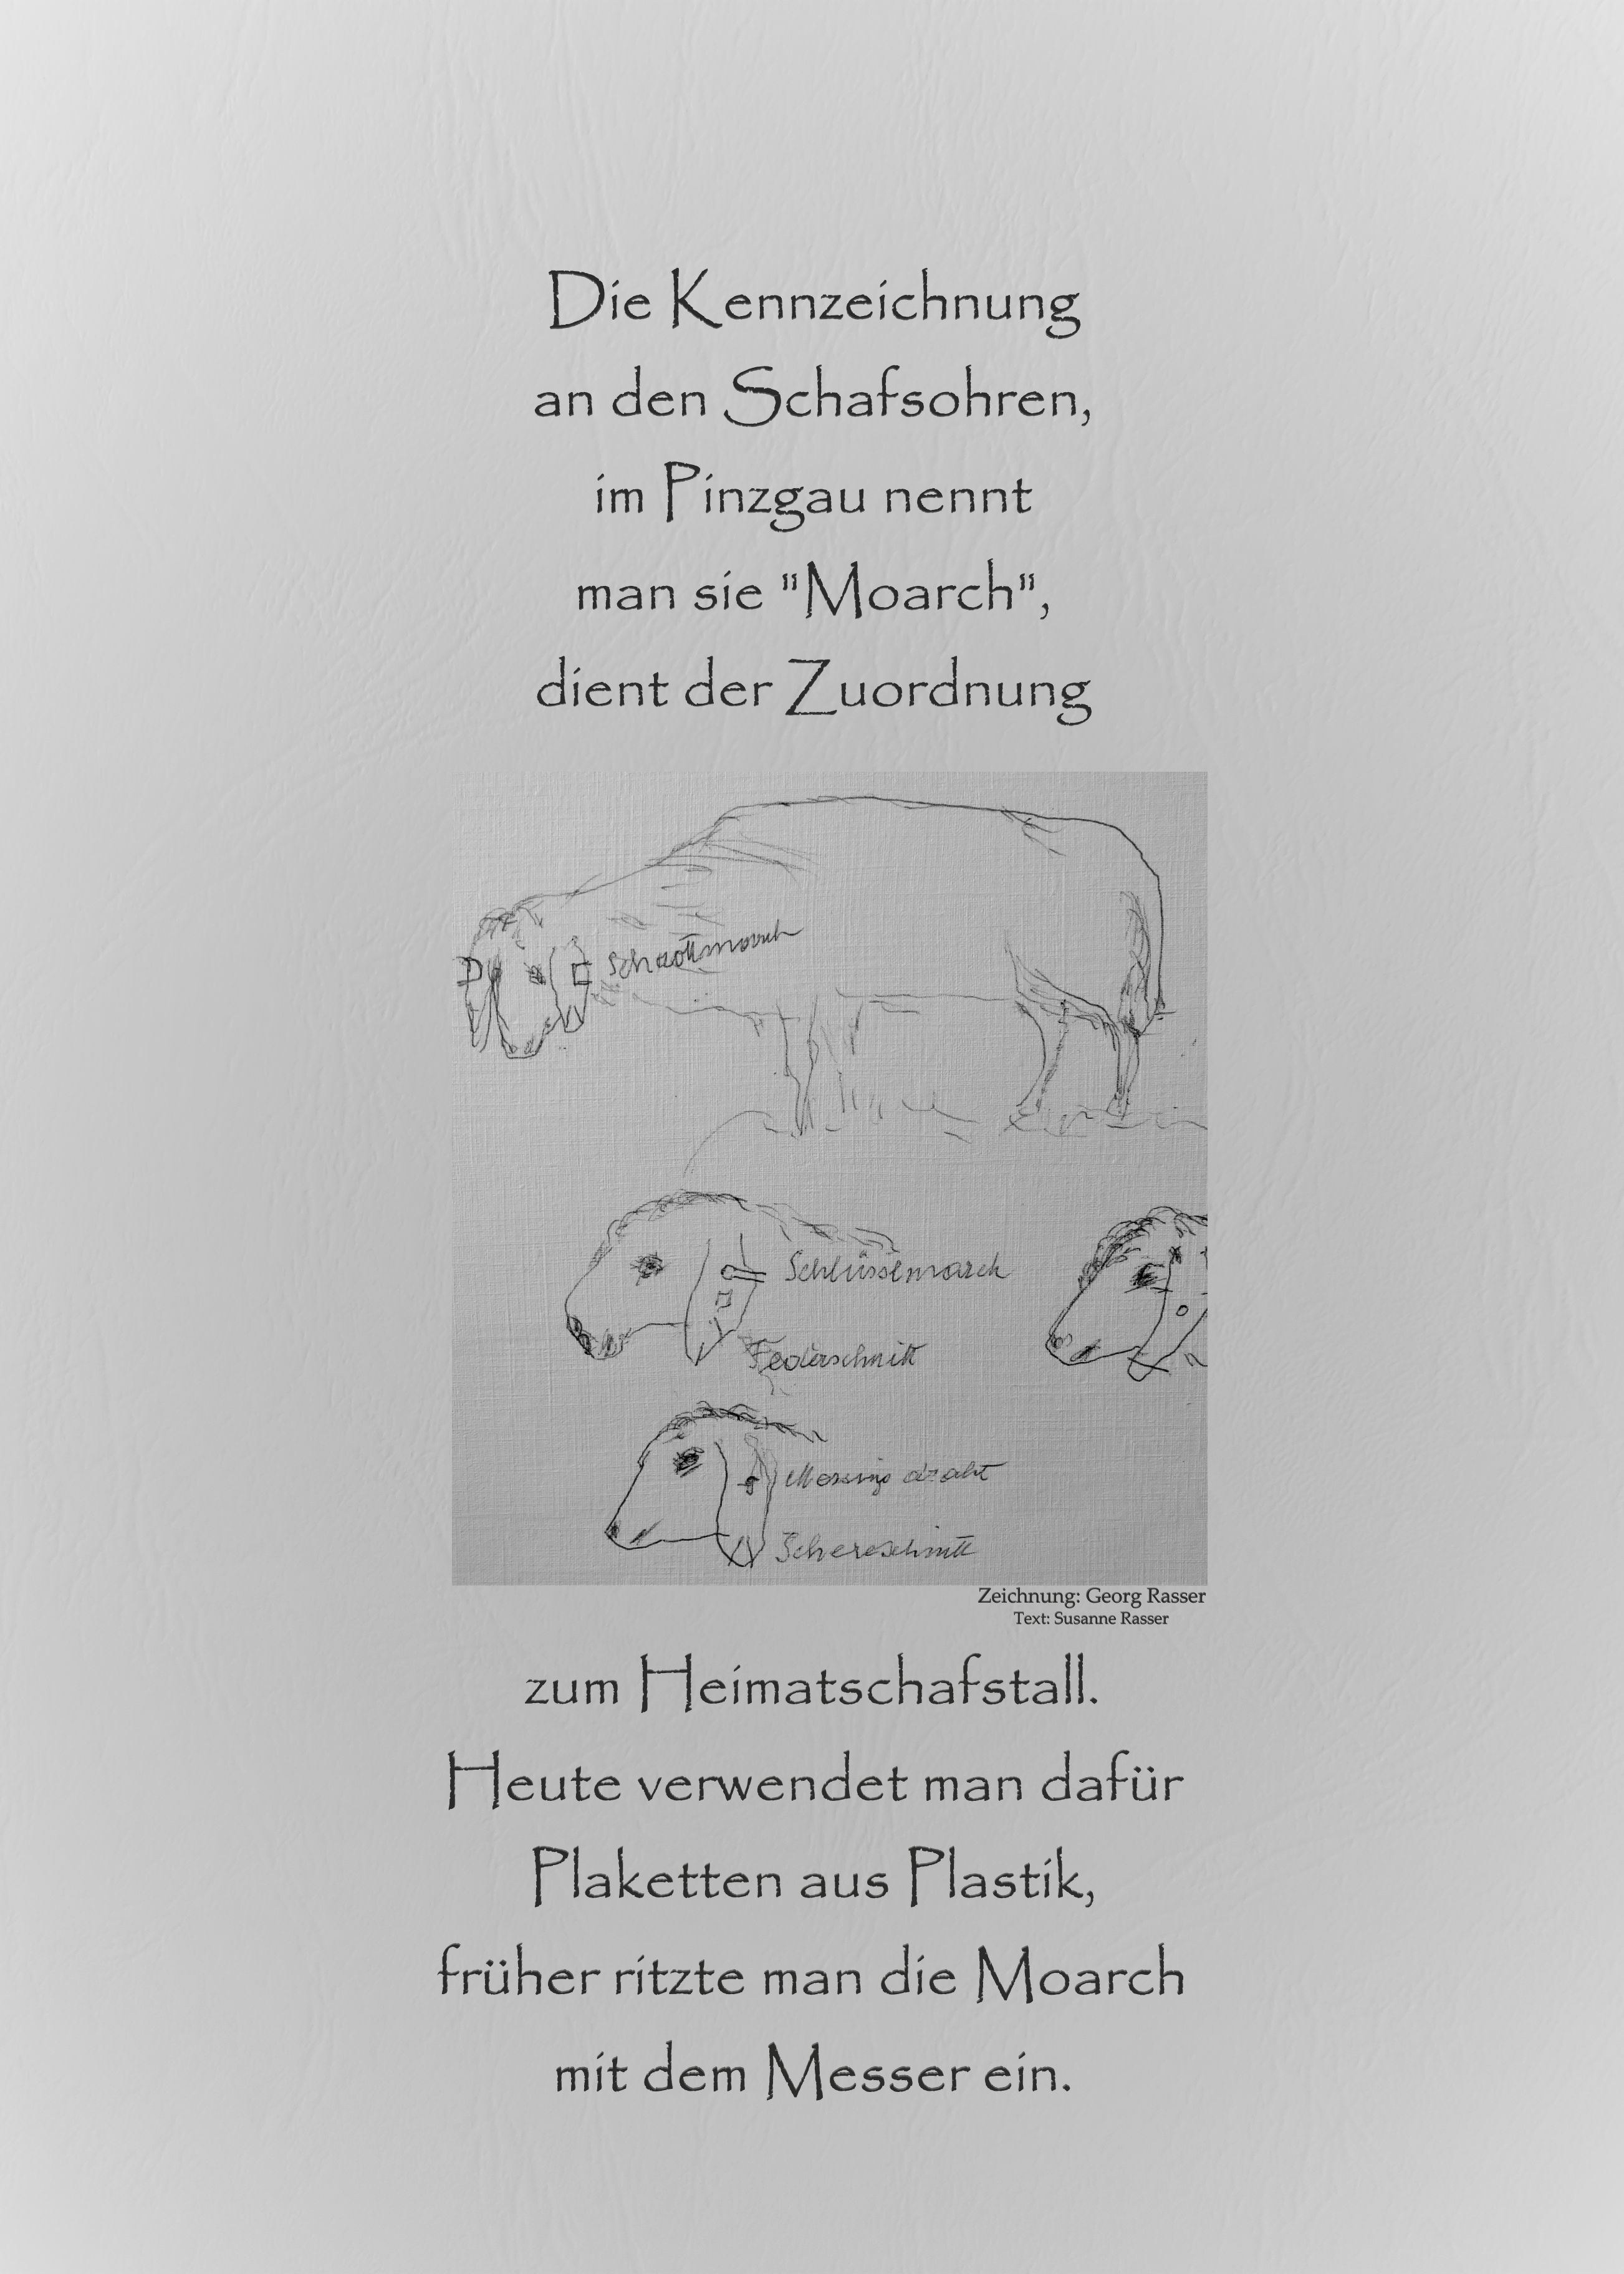 Die Kennzeichnung
an den Schafsohren,
im Pinzgau nennt
man sie "Moarch",
dient der Zuordnung
Schlüsslmarch
Federschnitt
Messing draht
Schereschnitt
Zeichnung: Georg Rasser
Text: Susanne Rasser
zum Heimatschafstall.
Heute verwendet man dafür
Plaketten aus Plastik,
früher ritzte man die Moarch
mit dem Messer ein.